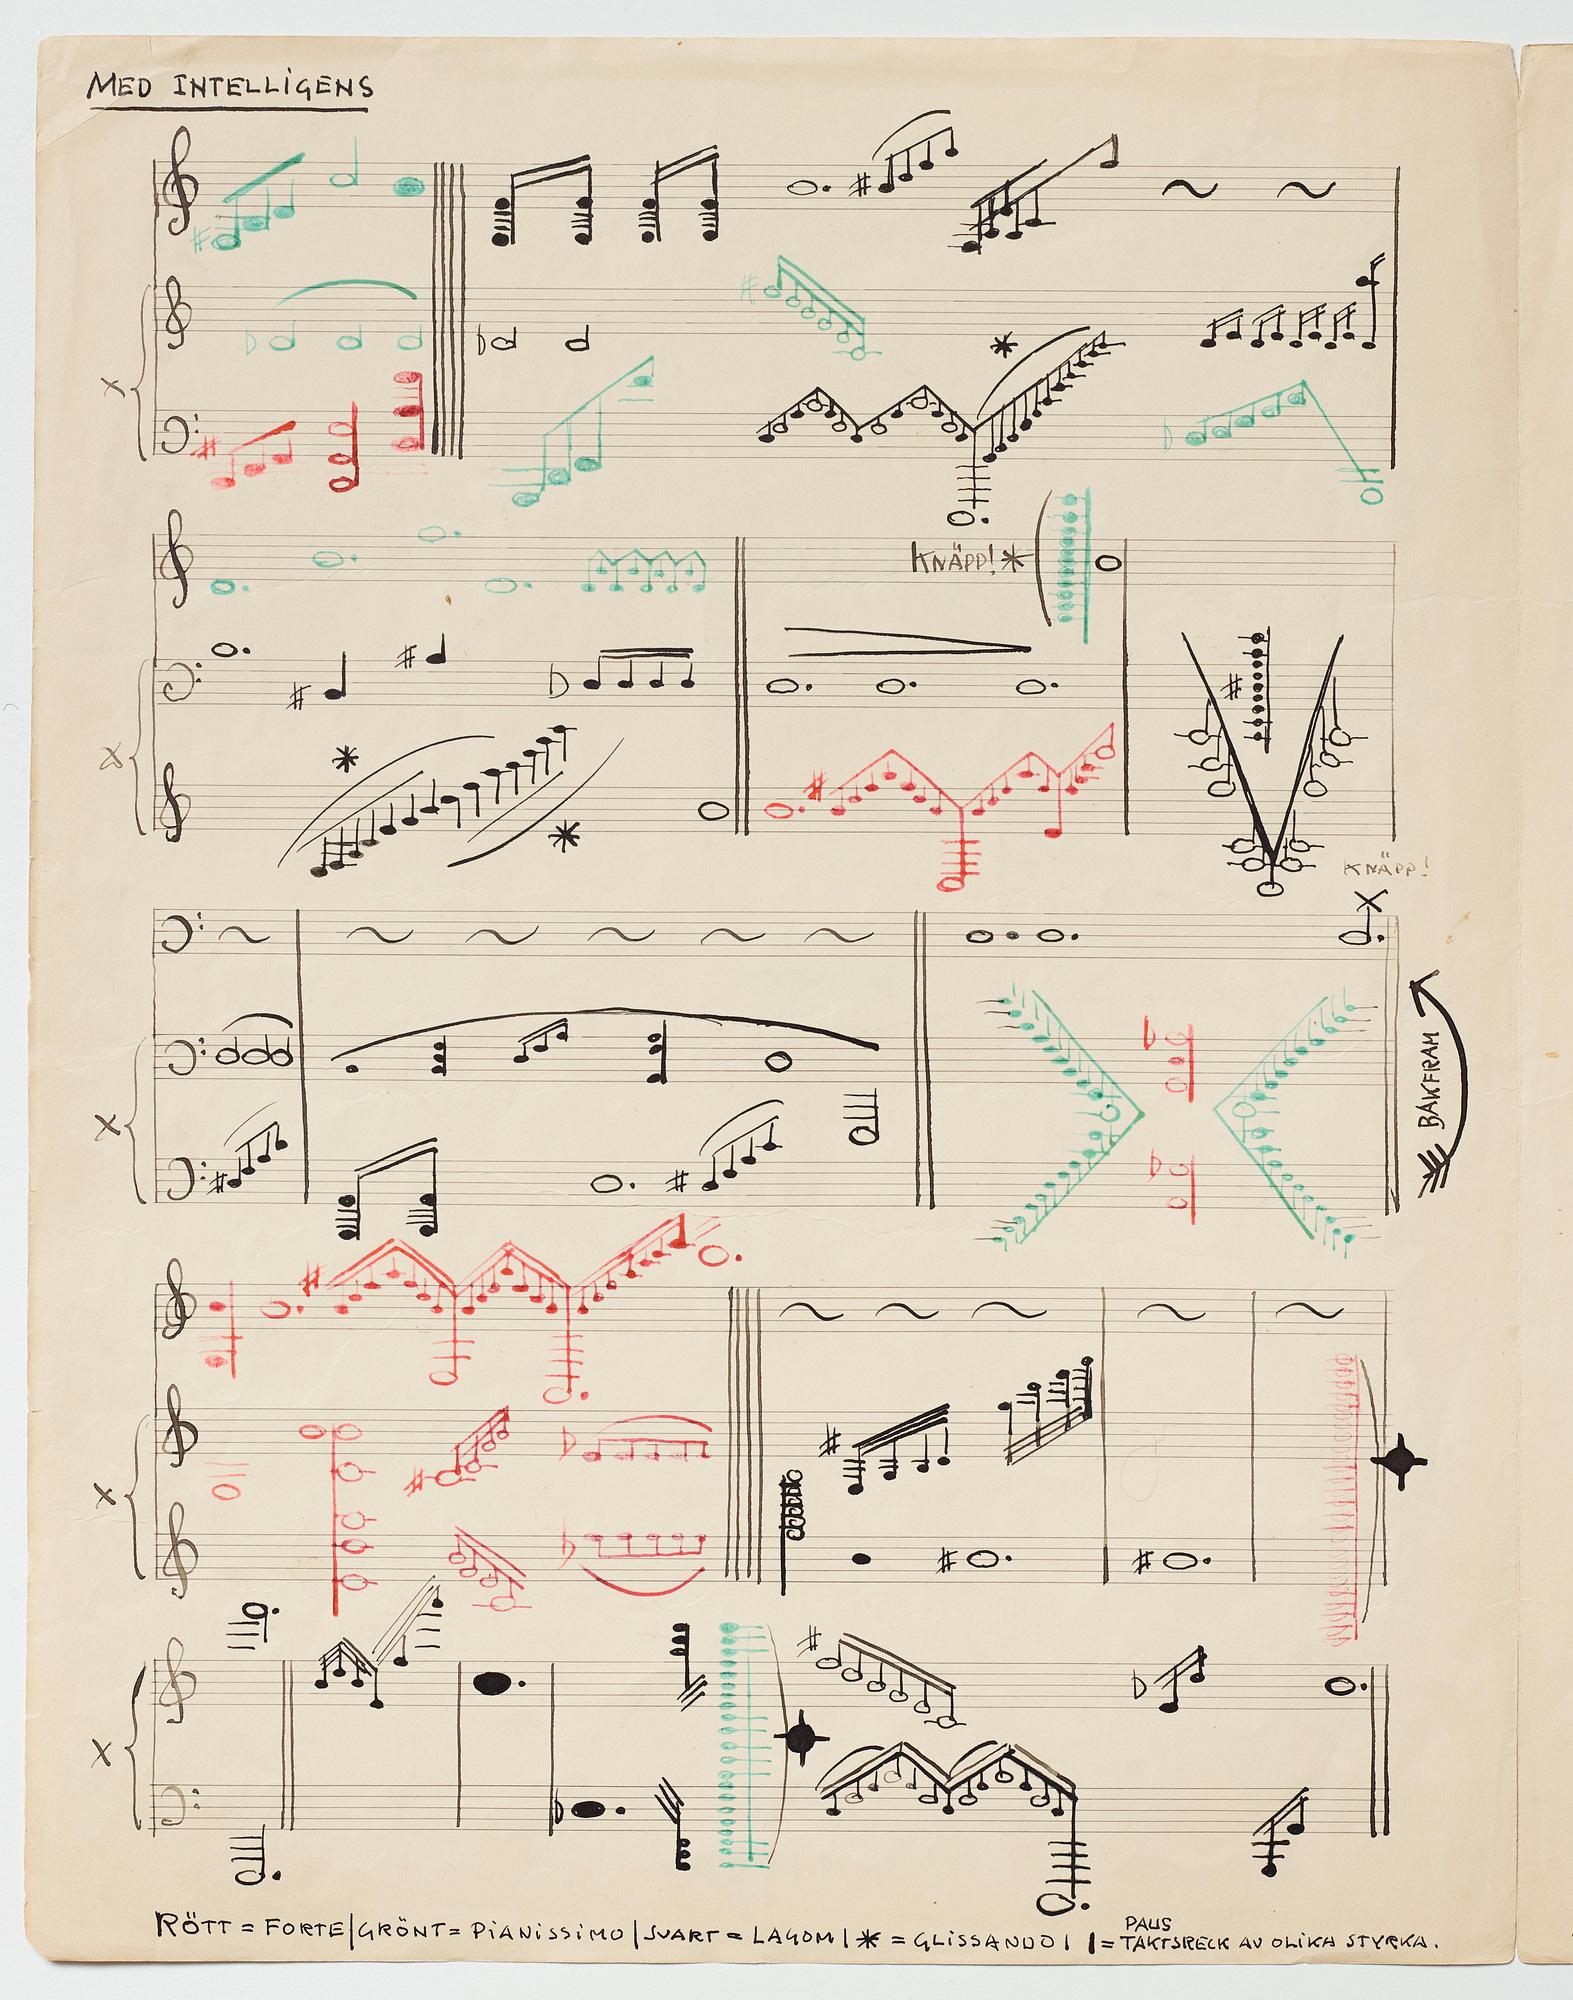 MED INTELLIGENS
KNÄPP!
KNÄPP!
BAKFRAM
RÖTT = FORTE | GRÖNT = PIANISSIMO | SVART = LAGOM | * = GLISSANDO | | = PAUS
TAKTSRECK AV OLIKA STYRKA.